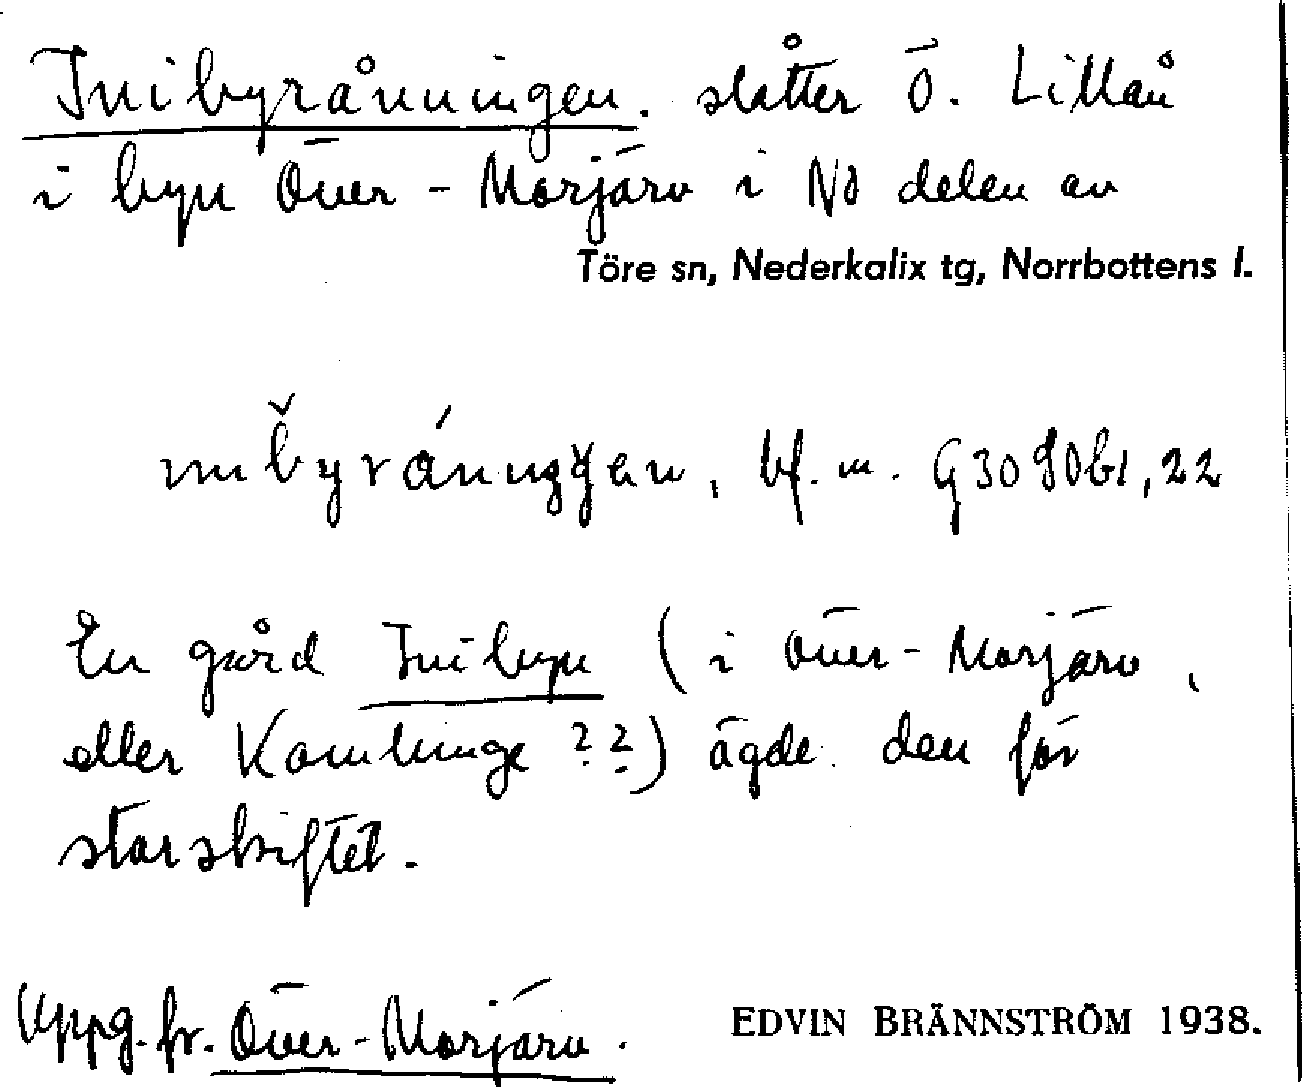 Inibyrånningen. slåtter Ö. Lillån
i byn Över-Morjärv i NÖ delen av
Töre sn, Nederkalix tg, Norrbottens l.
bf. m. G3090b1, 22
En gård Inibyn (i Över-Morjärv,
eller Kamlunge ??) ägde den för
storskiftet.
Uppg. fr. Över-Morjärv.
EDVIN BRÄNNSTRÖM 1938.